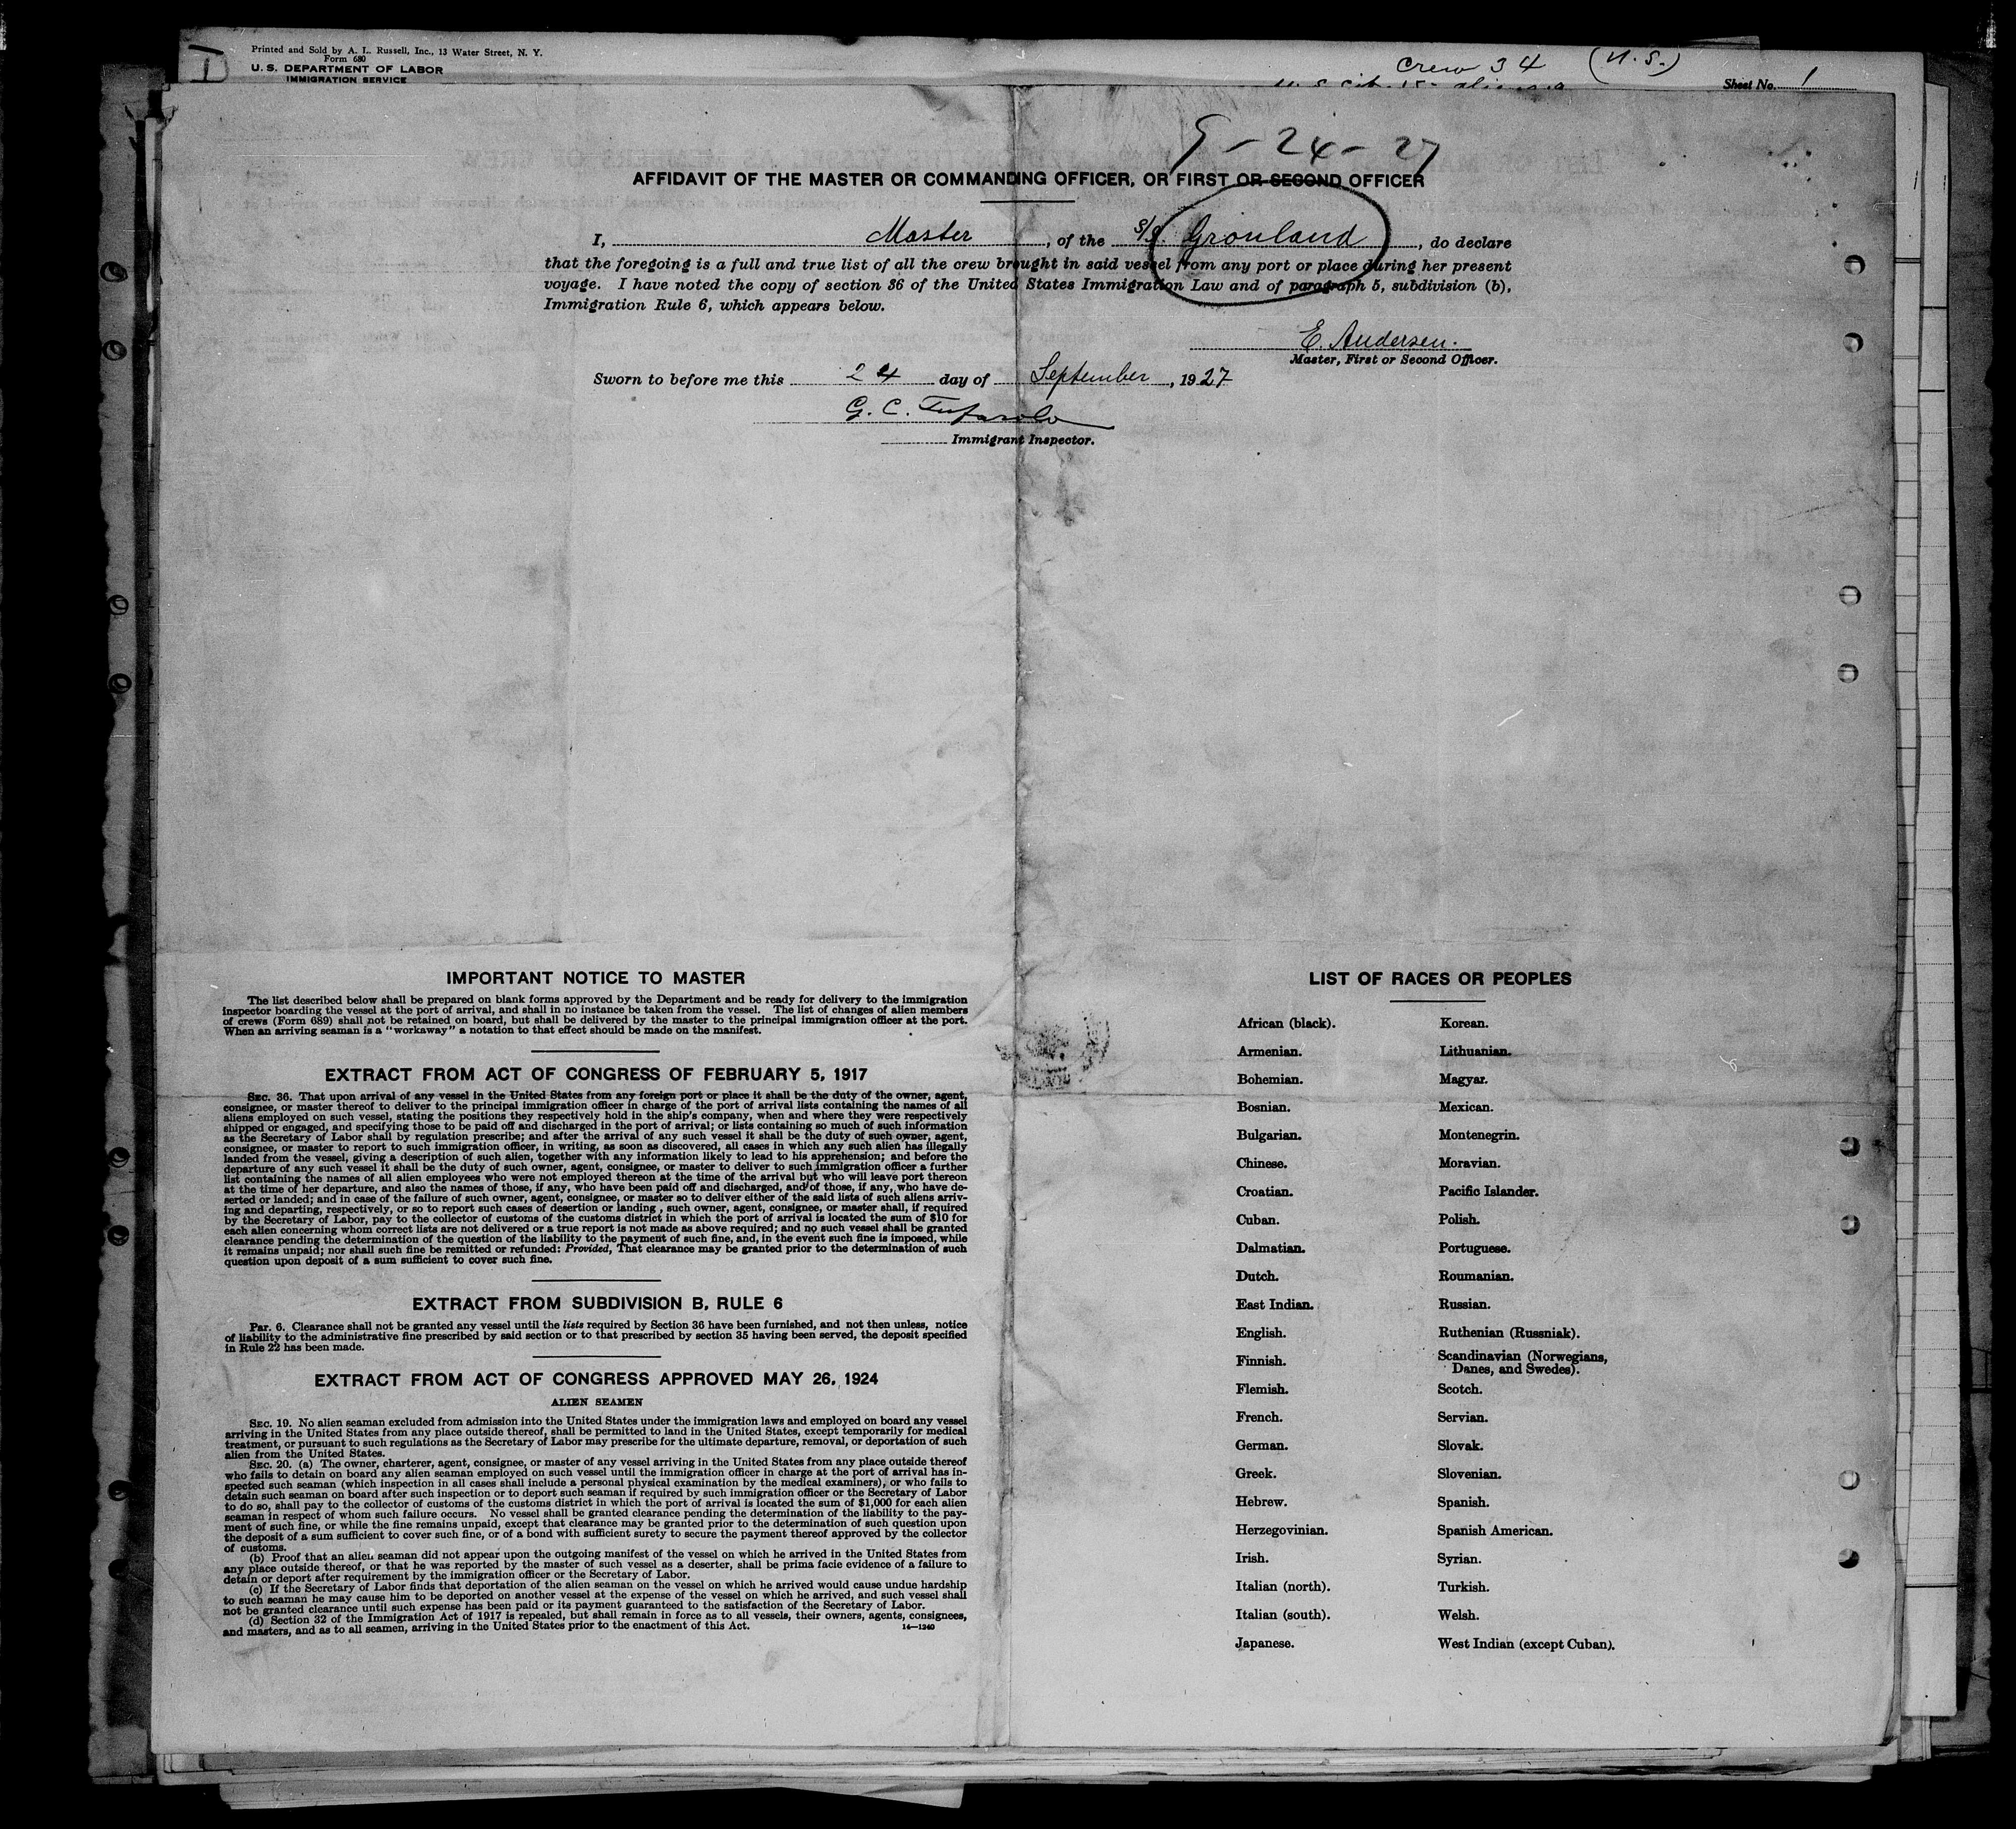 Printed and Sold by A. L. Russell, Inc., 13 Water Street, N. Y.
Form 680
U. S. DEPARTMENT OF LABOR
IMMIGRATION SERVICE
I
Crew 34 (U.S.)
Sheet No. 1
9-24-27
AFFIDAVIT OF THE MASTER OR COMMANDING OFFICER, OR FIRST OR SECOND OFFICER
I, Master, of the S/S. Gronland, do declare
that the foregoing is a full and true list of all the crew brought in said vessel from any port or place during her present
voyage. I have noted the copy of section 36 of the United States Immigration Law and of paragraph 5, subdivision (b),
Immigration Rule 6, which appears below.
E. Andersen.
Master, First or Second Officer.
Sworn to before me this 24 day of September, 1927
G. C.
Immigrant Inspector.
IMPORTANT NOTICE TO MASTER
The list described below shall be prepared on blank forms approved by the Department and be ready for delivery to the immigration
inspector boarding the vessel at the port of arrival, and shall in no instance be taken from the vessel. The list of changes of alien members
of crews (Form 689) shall not be retained on board, but shall be delivered by the master to the principal immigration officer at the port.
When an arriving seaman is a "workaway" a notation to that effect should be made on the manifest.
EXTRACT FROM ACT OF CONGRESS OF FEBRUARY 5, 1917
SEC. 36. That upon arrival of any vessel in the United States from any foreign port or place it shall be the duty of the owner, agent,
consignee, or master thereof to deliver to the principal immigration officer in charge of the port of arrival lists containing the names of all
aliens employed on such vessel, stating the positions they respectively hold in the ship's company, when and where they were respectively
shipped or engaged, and specifying those to be paid off and discharged in the port of arrival; or lists containing so much of such information
as the Secretary of Labor shall by regulation prescribe; and after the arrival of any such vessel it shall be the duty of such owner, agent,
consignee, or master to report to such immigration officer, in writing, as soon as discovered, all cases in which any such alien has illegally
landed from the vessel, giving a description of such alien, together with any information likely to lead to his apprehension; and before the
departure of any such vessel it shall be the duty of such owner, agent, consignee, or master to deliver to such immigration officer a further
list containing the names of all alien employees who were not employed thereon at the time of the arrival but who will leave port thereon
at the time of her departure, and also the names of those, if any, who have been paid off and discharged, and of those, if any, who have de-
serted or landed; and in case of the failure of such owner, agent, consignee, or master so to deliver either of the said lists of such aliens arriv-
ing and departing, respectively, or so to report such cases of desertion or landing , such owner, agent, consignee, or master shall, if required
by the Secretary of Labor, pay to the collector of customs of the customs district in which the port of arrival is located the sum of $10 for
each alien concerning whom correct lists are not delivered or a true report is not made as above required; and no such vessel shall be granted
clearance pending the determination of the question of the liability to the payment of such fine, and, in the event such fine is imposed, while
it remains unpaid; nor shall such fine be remitted or refunded: Provided, That clearance may be granted prior to the determination of such
question upon deposit of a sum sufficient to cover such fine.
EXTRACT FROM SUBDIVISION B, RULE 6
Par. 6. Clearance shall not be granted any vessel until the lists required by Section 36 have been furnished, and not then unless, notice
of liability to the administrative fine prescribed by said section or to that prescribed by section 35 having been served, the deposit specified
in Rule 22 has been made.
EXTRACT FROM ACT OF CONGRESS APPROVED MAY 26, 1924
ALIEN SEAMEN
SEC. 19. No alien seaman excluded from admission into the United States under the immigration laws and employed on board any vessel
arriving in the United States from any place outside thereof, shall be permitted to land in the United States, except temporarily for medical
treatment, or pursuant to such regulations as the Secretary of Labor may prescribe for the ultimate departure, removal, or deportation of such
alien from the United States.
SEC. 20. (a) The owner, charterer, agent, consignee, or master of any vessel arriving in the United States from any place outside thereof
who fails to detain on board any alien seaman employed on such vessel until the immigration officer in charge at the port of arrival has in-
spected such seaman (which inspection in all cases shall include a personal physical examination by the medical examiners), or who fails to
detain such seaman on board after such inspection or to deport such seaman if required by such immigration officer or the Secretary of Labor
to do so, shall pay to the collector of customs of the customs district in which the port of arrival is located the sum of $1,000 for each alien
seaman in respect of whom such failure occurs. No vessel shall be granted clearance pending the determination of the liability to the pay-
ment of such fine, or while the fine remains unpaid, except that clearance may be granted prior to the determination of such question upon
the deposit of a sum sufficient to cover such fine, or of a bond with sufficient surety to secure the payment thereof approved by the collector
of customs.
(b) Proof that an alien seaman did not appear upon the outgoing manifest of the vessel on which he arrived in the United States from
any place outside thereof, or that he was reported by the master of such vessel as a deserter, shall be prima facie evidence of a failure to
detain or deport after requirement by the immigration officer or the Secretary of Labor.
(c) If the Secretary of Labor finds that deportation of the alien seaman on the vessel on which he arrived would cause undue hardship
to such seaman he may cause him to be deported on another vessel at the expense of the vessel on which he arrived, and such vessel shall
not be granted clearance until such expense has been paid or its payment guaranteed to the satisfaction of the Secretary of Labor.
(d) Section 32 of the Immigration Act of 1917 is repealed, but shall remain in force as to all vessels, their owners, agents, consignees,
and masters, and as to all seamen, arriving in the United States prior to the enactment of this Act. 14—1240
LIST OF RACES OR PEOPLES
African (black). Korean.
Armenian. Lithuanian.
Bohemian. Magyar.
Bosnian. Mexican.
Bulgarian. Montenegrin.
Chinese. Moravian.
Croatian. Pacific Islander.
Cuban. Polish.
Dalmatian. Portuguese.
Dutch. Roumanian.
East Indian. Russian.
English. Ruthenian (Russniak).
Finnish. Scandinavian (Norwegians,
Danes, and Swedes).
Flemish. Scotch.
French. Servian.
German. Slovak.
Greek. Slovenian.
Hebrew. Spanish.
Herzegovinian. Spanish American.
Irish. Syrian.
Italian (north). Turkish.
Italian (south). Welsh.
Japanese. West Indian (except Cuban).